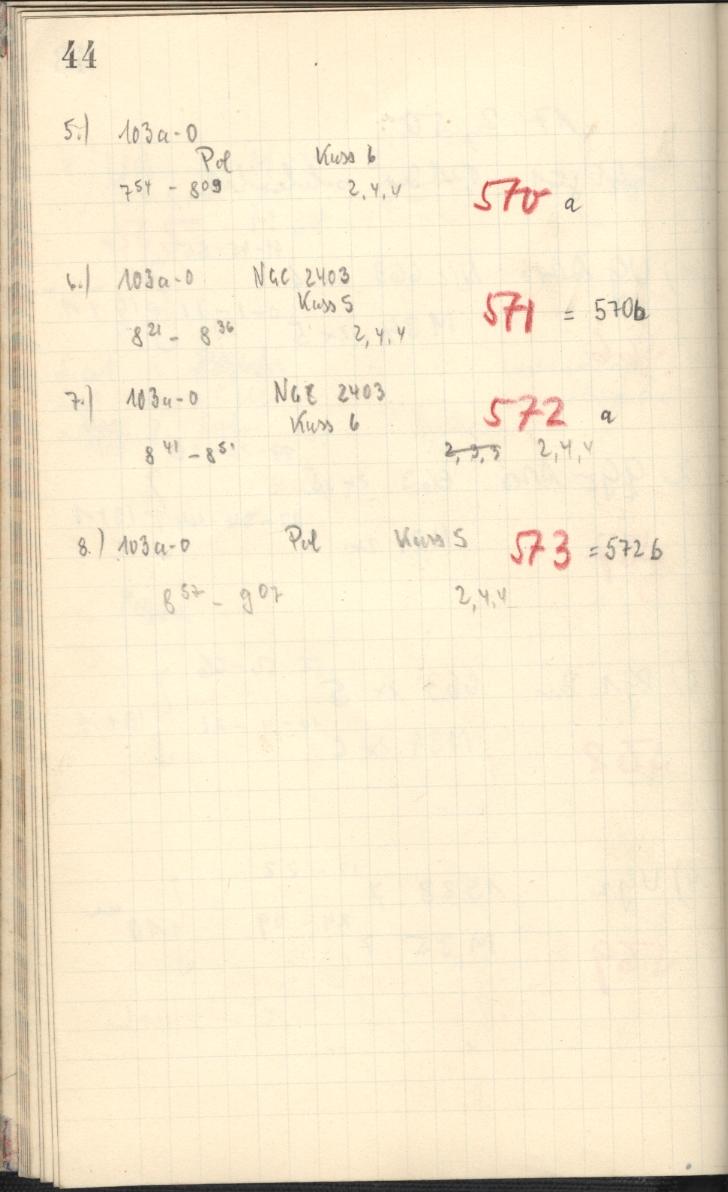 44
5.) 103a-O
Pol Kass 6
7⁵⁴ - 8⁰⁹ 2,4,4 570 a
6.) 103a-O NGC 2403
Kass 5 571 = 570b
8²¹ - 8³⁶ 2,4,4
7.) 103a-O NGC 2403
Kass 6 572 a
8⁴¹ - 8⁵¹ 2,4,4
8.) 103a-O Pol Kass 5 573 = 572b
8⁵⁷ - 9⁰⁷ 2,4,4